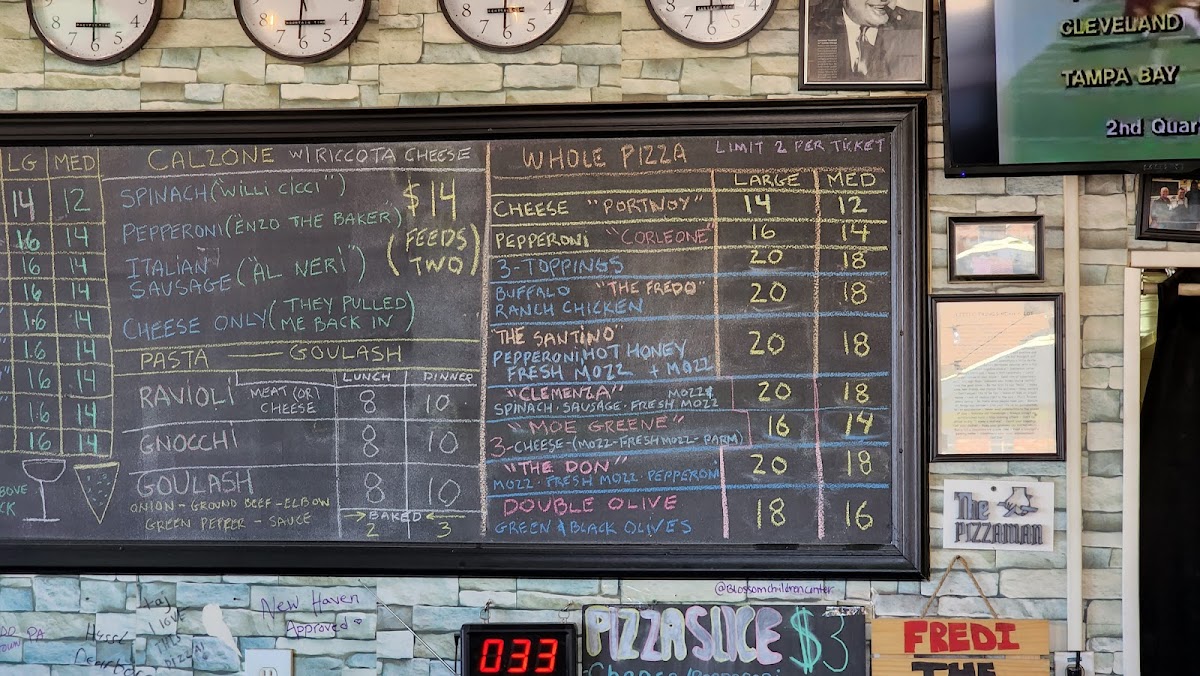 CLEVELAND
TAMPA BAY
2nd Quar
LG MED
14 12
16 14
16 14
16 14
16 14
16 14
16 14
16 14
16 14
BOVE
CALZONE W/ RICCOTA CHEESE
SPINACH ("WILLI CICCI")
PEPPERONI (ENZO THE BAKER")
ITALIAN
SAUSAGE ("AL NERI")
CHEESE ONLY (THEY PULLED
ME BACK IN)
$14
(FEEDS
TWO)
PASTA — GOULASH
LUNCH DINNER
RAVIOLI MEAT (OR) CHEESE 8 10
GNOCCHI 8 10
GOULASH 8 10
ONION - GROUND BEEF - ELBOW
GREEN PEPPER - SAUCE
→ BAKED ←
2 3
WHOLE PIZZA LIMIT 2 PER TICKET
LARGE MED
CHEESE "PORTNOY" 14 12
PEPPERONI "CORLEONE" 16 14
3-TOPPINGS 20 18
BUFFALO "THE FREDO" 20 18
RANCH CHICKEN
"THE SANTINO"
PEPPERONI, HOT HONEY 20 18
FRESH MOZZ + MOZZ
"CLEMENZA" MOZZ & 20 18
SPINACH · SAUSAGE · FRESH MOZZ
"MOE GREENE" 16 14
3-CHEESE-(MOZZ-FRESH MOZZ-PARM)
"THE DON" 20 18
MOZZ · FRESH MOZZ · PEPPERONI
DOUBLE OLIVE 18 16
GREEN & BLACK OLIVES
The
PIZZAMAN
@Blossomchildrencenter
New Haven
Approved
I LOVE
THIS
PIZZA!
033
PIZZA SLICE $3
FREDI
THE